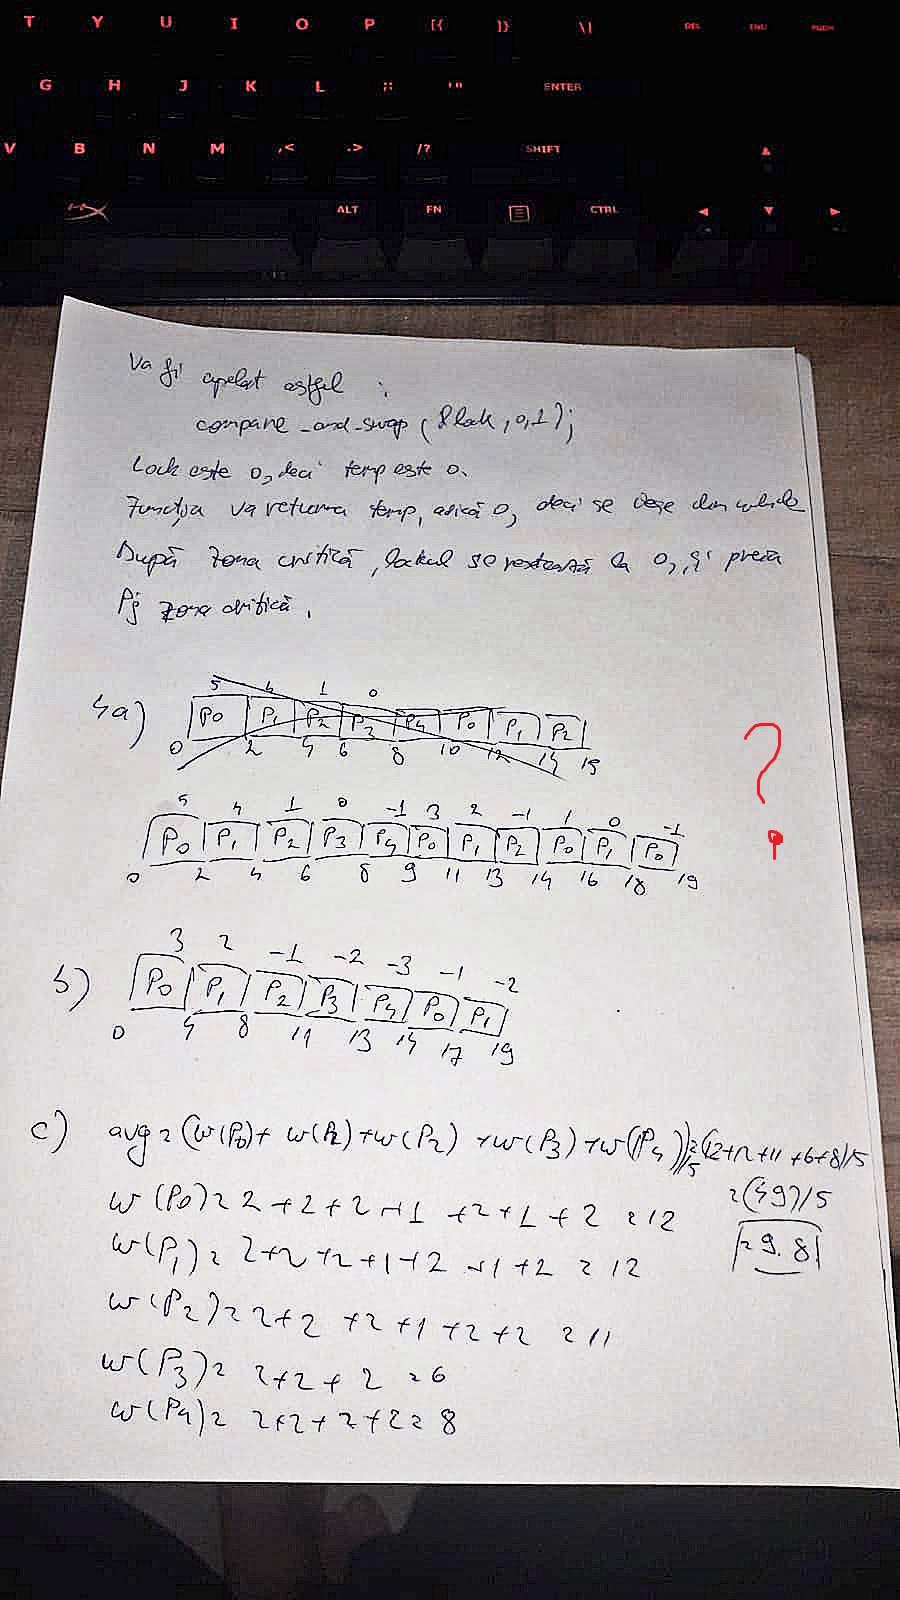 T Y U I O P [{ ]} \|
DEL END PGDN
G H J K L ;: '" ENTER
V B N M ,< .> /? SHIFT
ALT FN CTRL
Va fi apelat astfel :
compare_and_swap (&lock, 0, 1);
Lock este 0, deci temp este 0.
Funcția va returna temp, adică 0, deci se iese din while
După zona critică, lockul se resetează la 0, și preia
Pj zona critică.
4a)
5 4 1 0
P0 P1 P2 P3 P4 P0 P1 P2
0 2 4 6 8 10 12 14 15
5 4 1 0 -1 3 2 -1 1 0 -1
P0 P1 P2 P3 P4 P0 P1 P2 P0 P1 P0
0 2 4 6 8 9 11 13 14 16 18 19
?
b)
3 2 -1 -2 -3 -1 -2
P0 P1 P2 P3 P4 P0 P1
0 4 8 11 13 14 17 19
c) avg = (w(P0) + w(P1) + w(P2) + w(P3) + w(P4))/5 = (12+12+11+6+8)/5
= (49)/5
= 9.8
w(P0) = 2+2+2+1+2+1+2 = 12
w(P1) = 2+2+2+1+2+1+2 = 12
w(P2) = 2+2+2+1+2+2 = 11
w(P3) = 2+2+2 = 6
w(P4) = 2+2+2+2 = 8